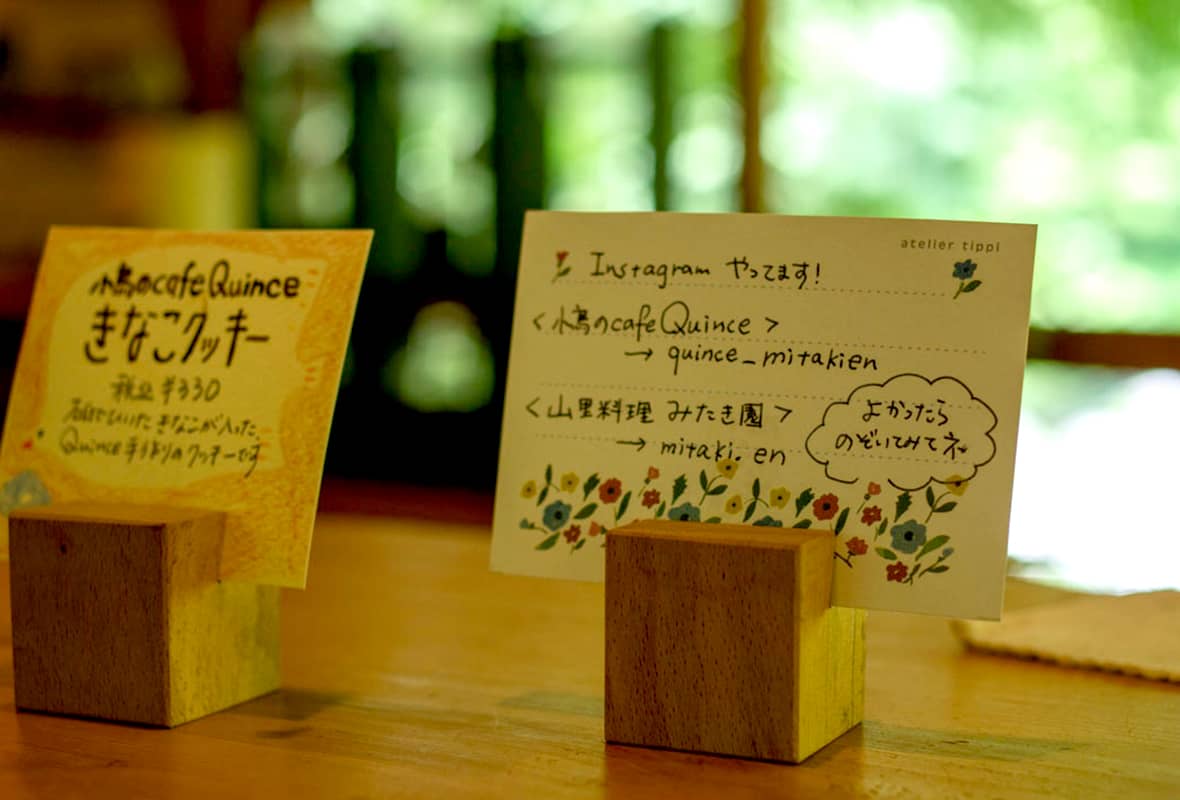 小鳥のcafe Quince
きなこクッキー
税込 ¥330
石臼でひいたきなこが入った
Quince手作りのクッキーです
atelier tippi
Instagram やってます!
<小鳥のcafe Quince>
→ quince_mitakien
<山里料理 みたき園>
→ mitaki.en
よかったら
のぞいてみてネ